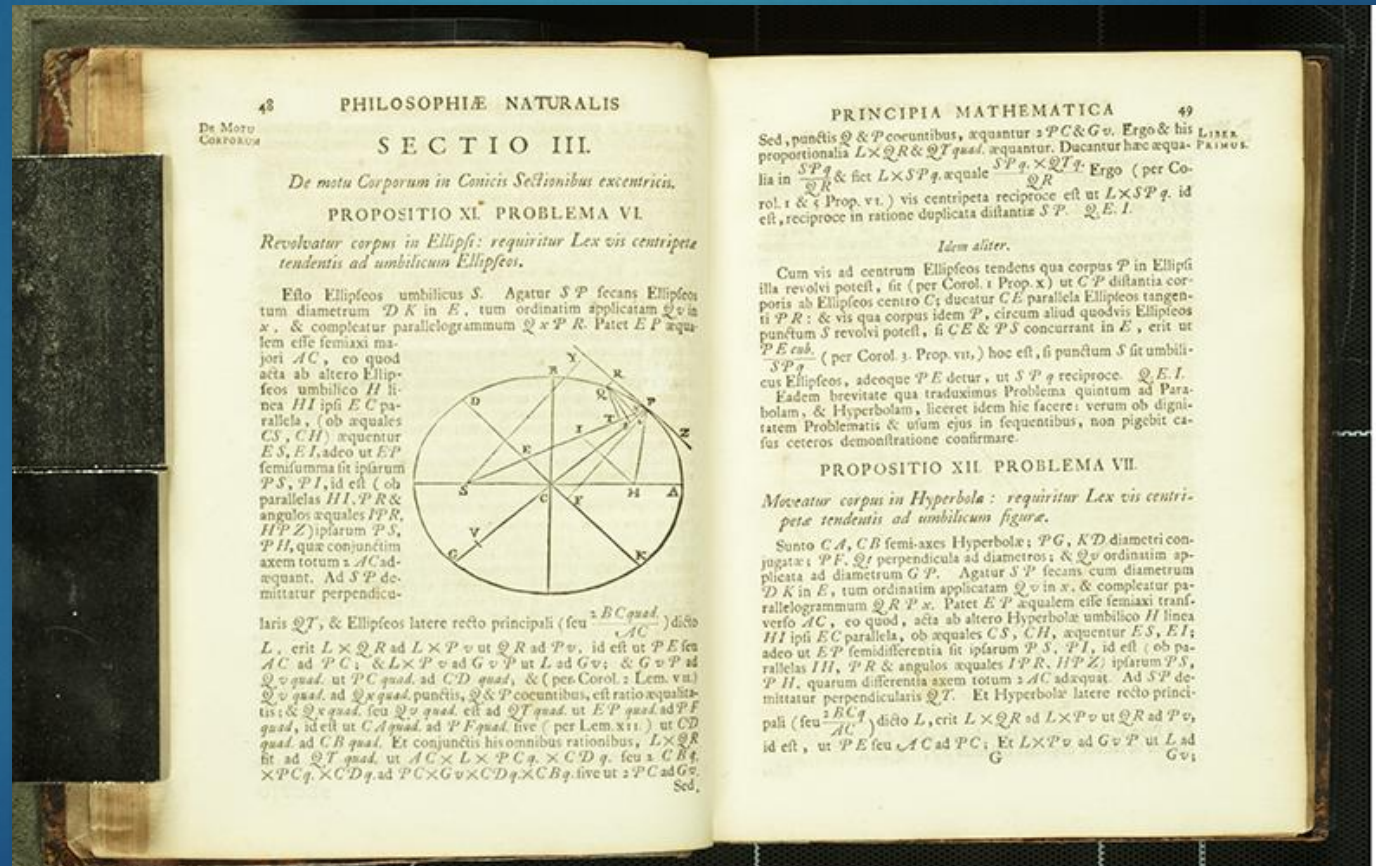 48 PHILOSOPHIÆ NATURALIS
De Motu
Corporum
SECTIO III.
De motu Corporum in Conicis Sectionibus excentricis.
PROPOSITIO XI. PROBLEMA VI.
Revolvatur corpus in Ellipsi: requiritur Lex vis centripetæ
tendentis ad umbilicum Ellipseos.
Esto Ellipseos umbilicus S. Agatur SP secans Ellipseos
tum diametrum DK in E, tum ordinatim applicatam Qv in
x, & compleatur parallelogrammum QxPR. Patet EP æqua-
lem esse semiaxi ma-
jori AC, eo quod
acta ab altero Ellip-
seos umbilico H li-
nea HI ipsi EC pa-
rallela, (ob æquales
CS, CH) æquentur
ES, EI, adeo ut EP
semisumma sit ipsarum
PS, PI, id est (ob
parallelas HI, PR &
angulos æquales IPR,
HPZ) ipsarum PS,
PH, quæ conjunctim
axem totum 2AC ad-
æquant. Ad SP de-
mittatur perpendicu-
Y
B
R
Q
D
P
T
I
Z
E
S
C
F
H
A
V
G
K
laris QT, & Ellipseos latere recto principali (seu 2BCquad./AC) dicto
L, erit L×QR ad L×Pv ut QR ad Pv, id est ut PE seu
AC ad PC; & L×Pv ad GvP ut L ad Gv; & GvP ad
Qv quad. ut PC quad. ad CD quad, & (per Corol. 2 Lem. VII.)
Qv quad. ad Qx quad. punctis, Q & P coeuntibus, est ratio æqualita-
tis; & Qx quad. seu Qv quad. est ad QT quad. ut EP quad. ad PF
quad, id est ut CA quad. ad PF quad. sive (per Lem. XII.) ut CD
quad. ad CB quad. Et conjunctis his omnibus rationibus, L×QR
fit ad QT quad. ut AC×L×PCq.×CDq. seu 2CBq.
×PCq.×CDq. ad PC×Gv×CDq.×CBq. sive ut 2PC ad Gv.
Sed,
PRINCIPIA MATHEMATICA 49
Liber
Primus.
Sed, punctis Q & P coeuntibus, æquantur 2PC & Gv. Ergo & his
proportionalia L×QR & QT quad. æquantur. Ducantur hæc æqua-
lia in SPq/QR & fiet L×SPq. æquale SPq.×QTq./QR Ergo (per Co-
rol. 1 & 5 Prop. VI.) vis centripeta reciproce est ut L×SPq. id
est, reciproce in ratione duplicata distantiæ SP. Q.E.I.
Idem aliter.
Cum vis ad centrum Ellipseos tendens qua corpus P in Ellipsi
illa revolvi potest, sit (per Corol. 1 Prop. X) ut CP distantia cor-
poris ab Ellipseos centro C; ducatur CE parallela Ellipseos tangen-
ti PR: & vis qua corpus idem P, circum aliud quodvis Ellipseos
punctum S revolvi potest, si CE & PS concurrant in E, erit ut
PE cub./SPq (per Corol. 3. Prop. VII,) hoc est, si punctum S sit umbili-
cus Ellipseos, adeoque PE detur, ut SPq reciproce. Q.E.I.
Eadem brevitate qua traduximus Problema quintum ad Para-
bolam, & Hyperbolam, liceret idem hic facere: verum ob digni-
tatem Problematis & usum ejus in sequentibus, non pigebit ca-
sus ceteros demonstratione confirmare.
PROPOSITIO XII. PROBLEMA VII.
Moveatur corpus in Hyperbola: requiritur Lex vis centri-
petæ tendentis ad umbilicum figuræ.
Sunto CA, CB semi-axes Hyperbolæ; PG, KD diametri con-
jugatæ; PF, Qt perpendicula ad diametros; & Qv ordinatim ap-
plicata ad diametrum GP. Agatur SP secans cum diametrum
DK in E, tum ordinatim applicatam Qv in x, & compleatur pa-
rallelogrammum QRPx. Patet EP æqualem esse semiaxi trans-
verso AC, eo quod, acta ab altero Hyperbolæ umbilico H linea
HI ipsi EC parallela, ob æquales CS, CH, æquentur ES, EI;
adeo ut EP semidifferentia sit ipsarum PS, PI, id est (ob pa-
rallelas IH, PR & angulos æquales IPR, HPZ) ipsarum PS,
PH, quarum differentia axem totum 2AC adæquat. Ad SP de-
mittatur perpendicularis QT. Et Hyperbolæ latere recto princi-
pali (seu 2BCq/AC) dicto L, erit L×QR ad L×Pv ut QR ad Pv,
id est, ut PE seu AC ad PC; Et L×Pv ad GvP ut L ad
G Gv;